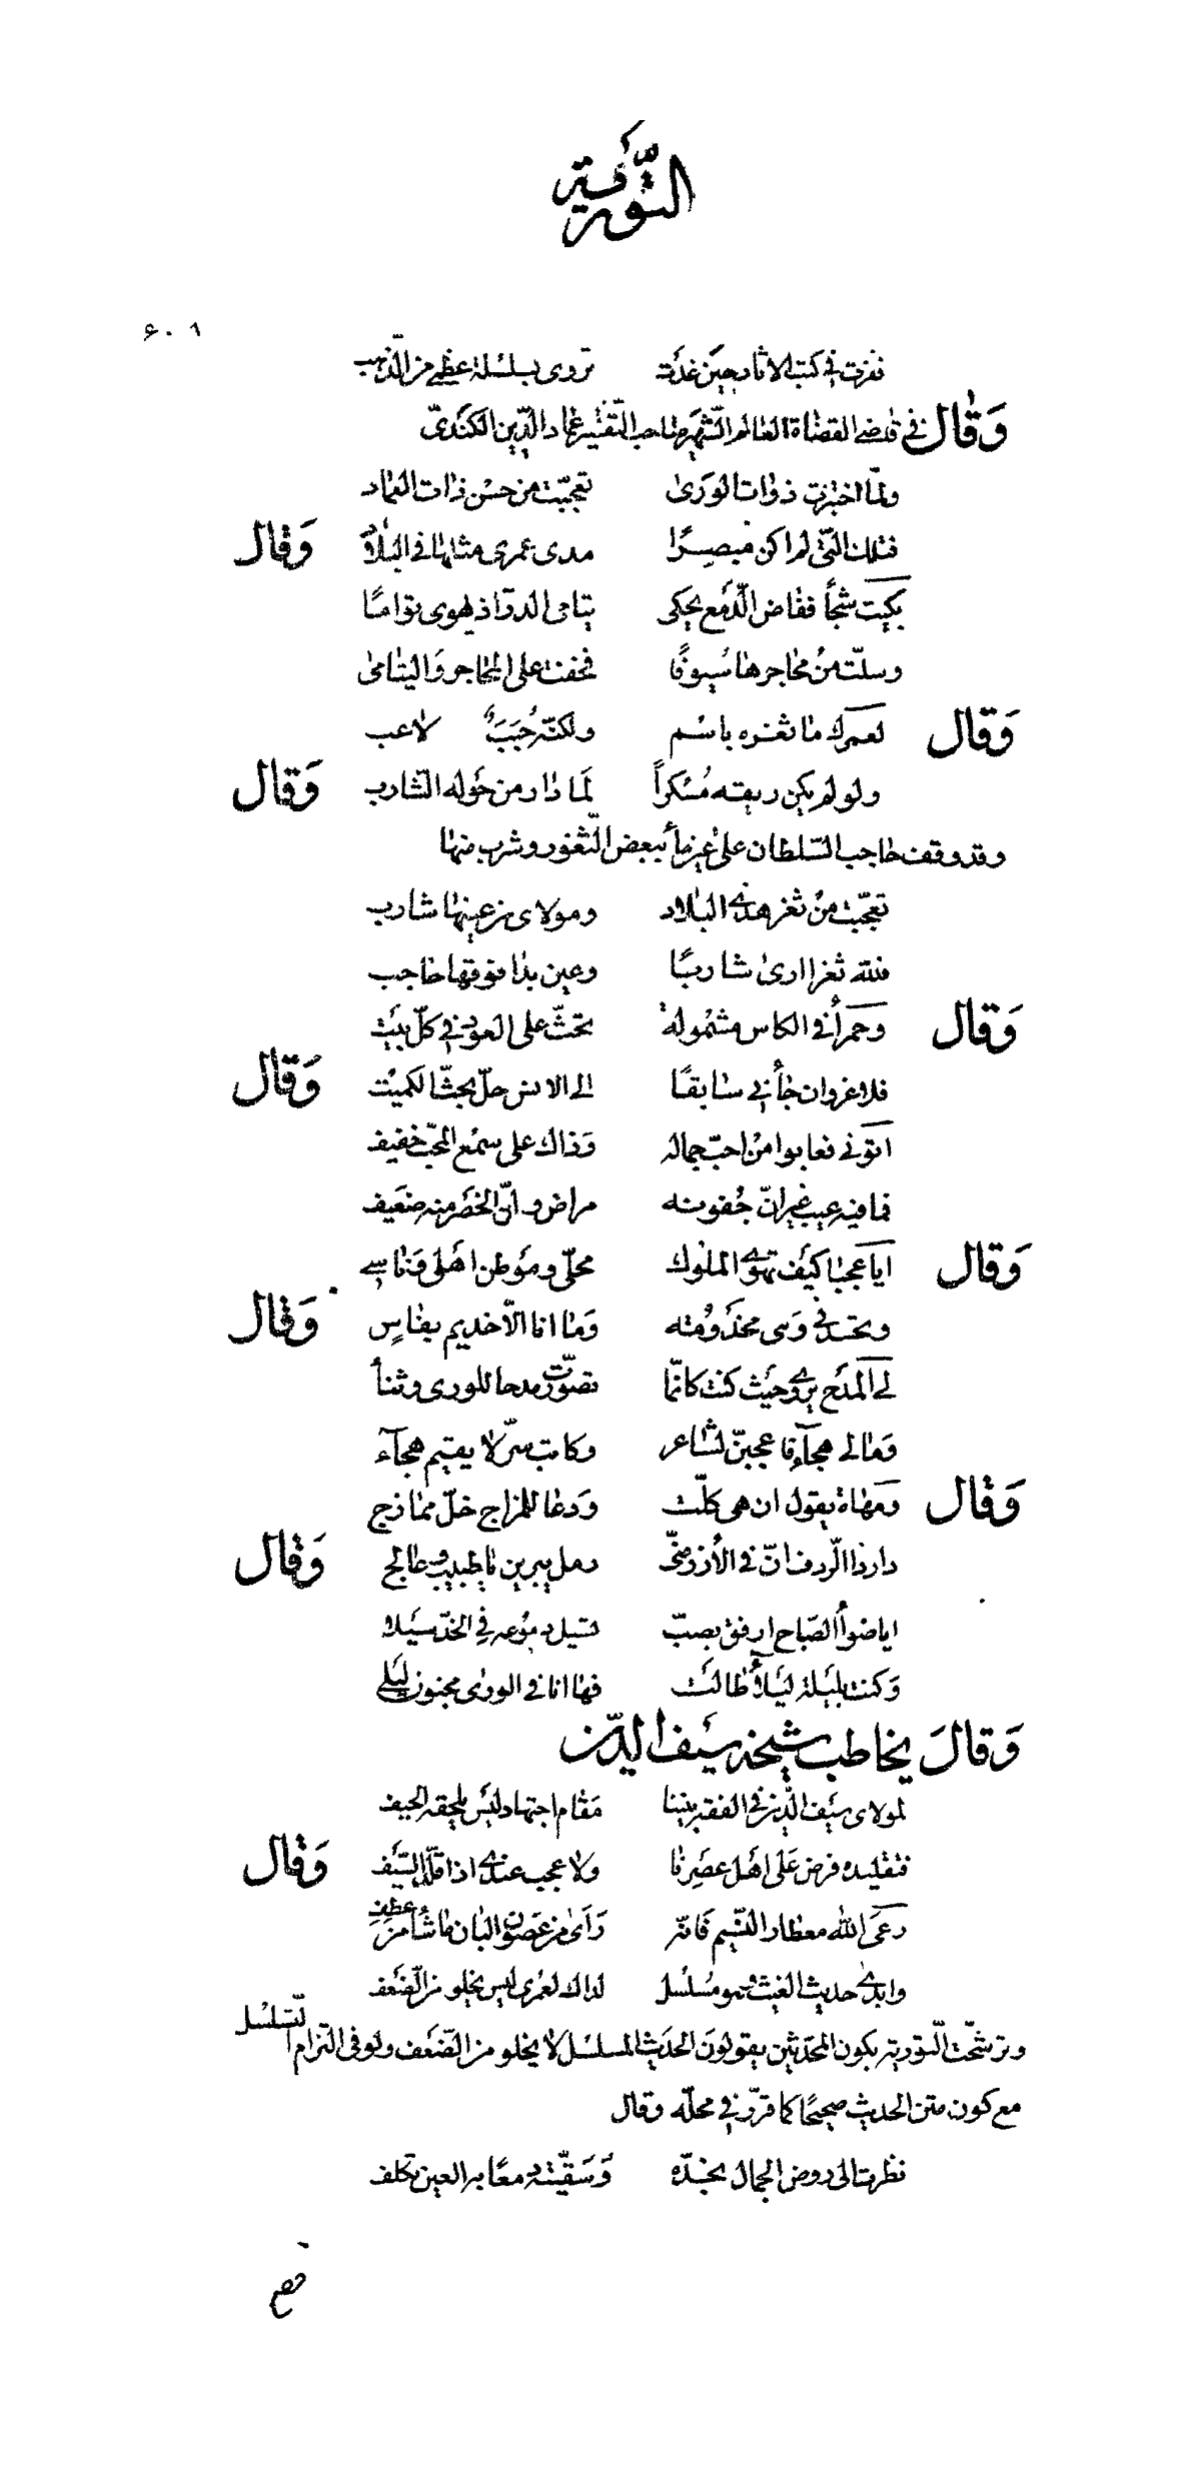 التورية
٦٠١
نفزت في كتب الاثار حين غدت تروى بسلسلة عظمى من الذهب
وَقال في قاضي القضاة العالم الشهير صاحب التفسير عماد الدين الكندىّ
ولمّا اختبرت ذوات الورى تعجّبت من حسن ذات العماد
فتلك التي لم اكن مبصِرًا مدى عمرى مثلها في البلاد وَقال
بكيت شجاً ففاض الدّمع يحكى يتامى الدر اذ يهوى تؤامًا
وسلّت من محاجرها سُيوفًا فخفت على المحاجر وَاليتامى
وَقال لعمرك ما ثغره باسم ولكنّه حَبَبٌ لاعب
ولو لم يكن ريقه مُسْكراً لَما دار من حَوله الشّارب وَقال
وقد وقف حاجب السّلطان على عين ماءٍ ببعض الثّغور وشرب منها
تعجّبت من ثغر هذى البلاد ومولاى من عينها شارب
فللّه ثغر ارى شاربًا وعين بدا فوقها حاجب
وَقال وحمراء في الكاس مشمولة تحثّ على العود في كلّ بيت
فلا غرو ان جاءني سابقًا الى الانس حلّ يحثّ الكميت وَقال
اتونى فعابوا من احبّ جماله وَذاك على سمع المحبّ خفيف
فما فيه عيب غير انّ جُفونه مراض وانّ الخصر منه ضعيف
وَقال ايا عجبا كيف تهوى الملوك محلّى ومَوطن اهلى وَناسي
وتحسدنى وَهى مخدومة وَما انا الّا خديم بفاسٍ وَقال
لي المدح يروى حَيث كنت كانّما تصوّرت مدحا للورى وثنأ
وَمالى هجآء فاعجبنّ لشاعر وكاتب سرّ لا يقيم هجآء
وَقال وَمهاة يقول ان هى كلّت وَدعا للمزاج خلّ ممازج
دار ذا الرّدف انّ في الأزر منّى رمل يبرين يا طبيب وعالج وَقال
ايا ضوأ الصّباح ارفق بصبّ تسيل دموعه في الخدّ سَيلا
وَكنت بليلة ليلاء طالت فها انا فى الورى مجنون ليلى
وَقالَ يخاطب شيخه سَيف الدّين
لمولاى سَيف الدّين في الفقه بيننا مَقام اجتهاد ليس يلحقه الحيف
فتقليده فرض عَلى اهل عصرِنا ولا عجب عندى اذا قلّد السّيف وَقال
رعَى اللّه معطار النّسيم فانّه رَأى من غصون البان ما شاء من عطف
وابدى حديث الغيث وهو مُسلسل لذاك لعمرى ليس يخلو من الضّعف
وترشّحت التّورية بكون المحدّثين يقولونَ الحدَيث المسلسل لا يخلو من الضّعَف ولو فى التزام التسلسل
مع كون متن الحديث صحيحًا كما قرّر في محلّه وقال
نظرت الى روض الجمال بخدّه وَسَقّيته دمعًا به العين تكلف